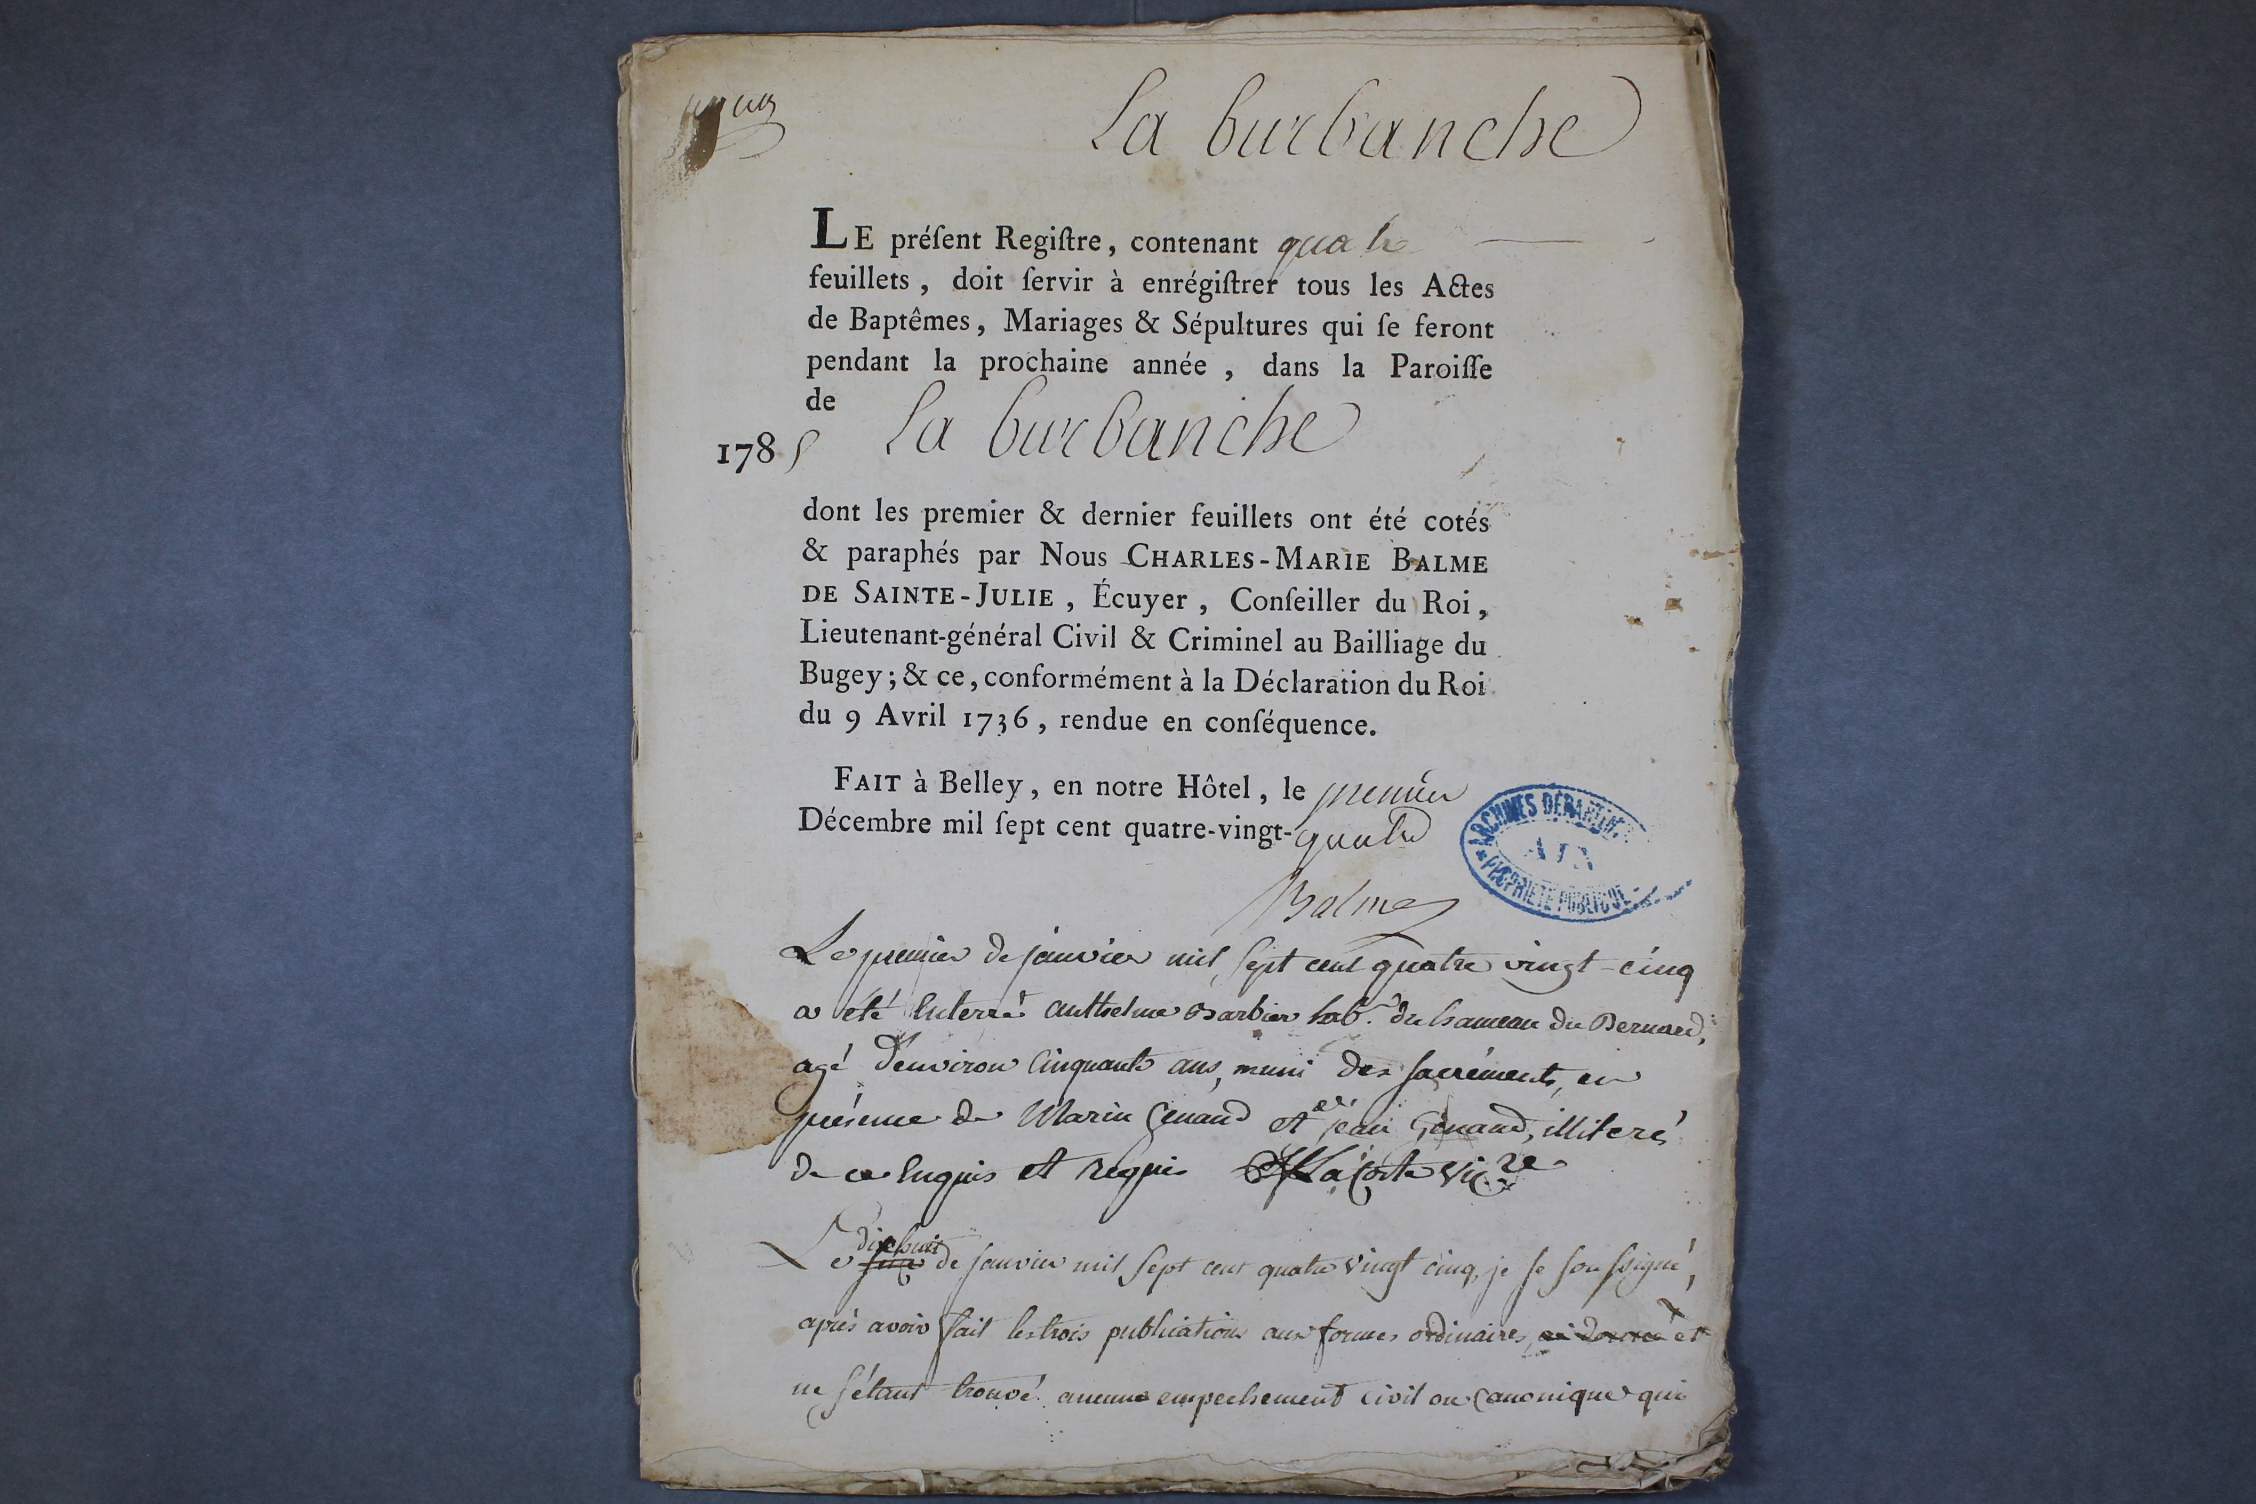 La burbanche
LE préſent Regiſtre, contenant quatre
feuillets, doit ſervir à enrégiſtrer tous les Actes
de Baptêmes, Mariages & Sépultures qui ſe feront
pendant la prochaine année, dans la Paroiſſe
de
1785 La burbanche
dont les premier & dernier feuillets ont été cotés
& paraphés par Nous CHARLES-MARIE BALME
DE SAINTE-JULIE, Écuyer, Conſeiller du Roi,
Lieutenant-général Civil & Criminel au Bailliage du
Bugey; & ce, conformément à la Déclaration du Roi
du 9 Avril 1736, rendue en conſéquence.
FAIT à Belley, en notre Hôtel, le premier
Décembre mil ſept cent quatre-vingt-quatre
ARCHIVES DÉPARTEM.
AIN
PROPRIÉTÉ PUBLIQUE
Balme
Le premier de janvier mil sept cent quatre vingt-cinq
a été enterré anthelme Barbier lab.r du hameau du Bernard,
agé d'environ cinquante ans, muni des sacréments, en
présence de Marin Genand et de jean Genand, illiterés
de ce enquis et requis Lacoste vic.re
Le dixhuit de janvier mil sept cent quatre vingt cinq, je se soussigné,
après avoir fait les trois publications aux formes ordinaires, et
ne s'étant trouvé aucune empechement civil ou canonique qui